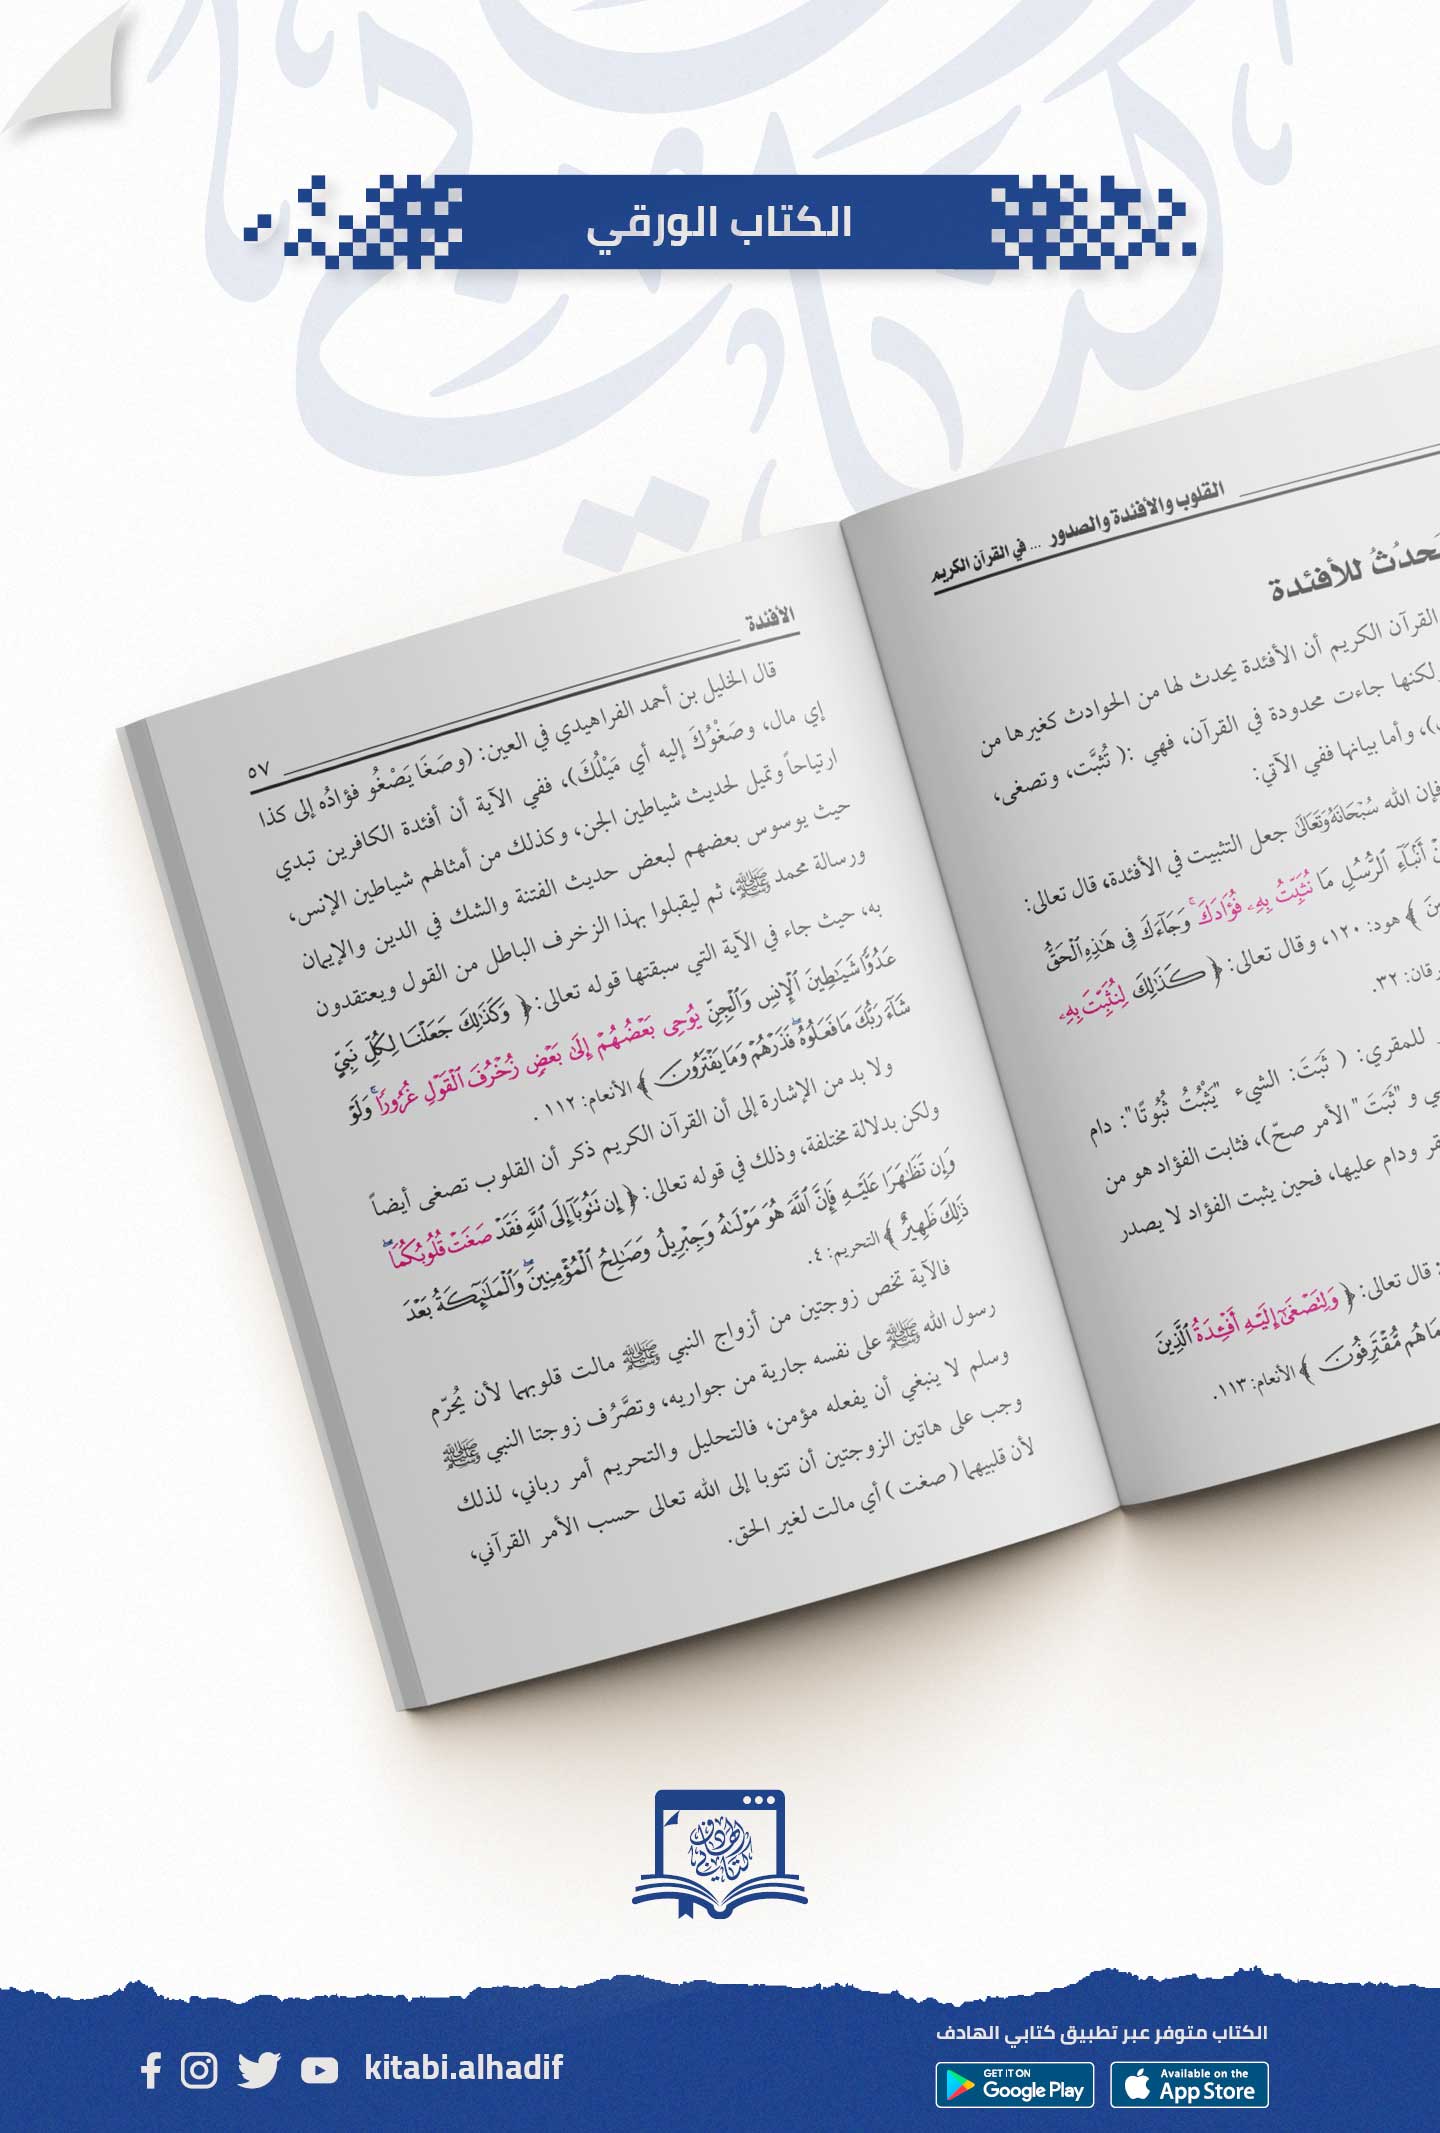 الكتاب الورقي
القلوب والأفئدة والصدور ... في القرآن الكريم
يَحدُثُ للأفئدة
القرآن الكريم أن الأفئدة يحدث لها من الحوادث كغيرها من
ولكنها جاءت محدودة في القرآن، فهي :( تُثبَّت، وتصغى،
)، وأما بيانها ففي الآتي:
فإن الله سُبْحَانَهُ وَتَعَالَىٰ جعل التثبيت في الأفئدة، قال تعالى:
أَنۢبَآءِ ٱلرُّسُلِ مَا نُثَبِّتُ بِهِۦ فُؤَادَكَۚ وَجَآءَكَ فِي هَٰذِهِ ٱلۡحَقُّ
﴾ هود: ١٢٠، وقال تعالى: ﴿ كَذَٰلِكَ لِنُثَبِّتَ بِهِۦ
رقان: ٣٢.
للمقري: ( ثَبَتَ: الشيء "يَثْبُتُ ثُبُوتًا": دام
ي و "ثَبَتَ" الأمر صحّ)، فثابت الفؤاد هو من
قر ودام عليها، فحين يثبت الفؤاد لا يصدر
: قال تعالى: ﴿ وَلِتَصۡغَىٰٓ إِلَيۡهِ أَفۡـِٔدَةُ ٱلَّذِينَ
مَا هُم مُّقۡتَرِفُونَ ﴾ الأنعام: ١١٣.
الأفئدة
٥٧
قال الخليل بن أحمد الفراهيدي في العين: (وصَغَا يَصْغُو فؤادُه إلى كذا
إي مال، وصَغْوُكَ إليه أي مَيْلُكَ)، ففي الآية أن أفئدة الكافرين تبدي
ارتياحاً وتميل لحديث شياطين الجن، وكذلك من أمثالهم شياطين الإنس،
حيث يوسوس بعضهم لبعض حديث الفتنة والشك في الدين والإيمان
ورسالة محمد ﷺ، ثم ليقبلوا بهذا الزخرف الباطل من القول ويعتقدون
به، حيث جاء في الآية التي سبقتها قوله تعالى: ﴿ وَكَذَٰلِكَ جَعَلۡنَا لِكُلِّ نَبِيٍّ
عَدُوّٗا شَيَٰطِينَ ٱلۡإِنسِ وَٱلۡجِنِّ يُوحِي بَعۡضُهُمۡ إِلَىٰ بَعۡضٖ زُخۡرُفَ ٱلۡقَوۡلِ غُرُورٗاۚ وَلَوۡ
شَآءَ رَبُّكَ مَا فَعَلُوهُۖ فَذَرۡهُمۡ وَمَا يَفۡتَرُونَ ﴾ الأنعام: ١١٢ .
ولا بد من الإشارة إلى أن القرآن الكريم ذكر أن القلوب تصغى أيضاً
ولكن بدلالة مختلفة، وذلك في قوله تعالى: ﴿ إِن تَتُوبَآ إِلَى ٱللَّهِ فَقَدۡ صَغَتۡ قُلُوبُكُمَاۖ
وَإِن تَظَٰهَرَا عَلَيۡهِ فَإِنَّ ٱللَّهَ هُوَ مَوۡلَىٰهُ وَجِبۡرِيلُ وَصَٰلِحُ ٱلۡمُؤۡمِنِينَۖ وَٱلۡمَلَٰٓئِكَةُ بَعۡدَ
ذَٰلِكَ ظَهِيرٌ ﴾ التحريم: ٤.
فالآية تخص زوجتين من أزواج النبي ﷺ مالت قلوبهما لأن يُحرّم
رسول الله ﷺ على نفسه جارية من جواريه، وتصَّرُف زوجتا النبي ﷺ
وسلم لا ينبغي أن يفعله مؤمن، فالتحليل والتحريم أمر رباني، لذلك
وجب على هاتين الزوجتين أن تتوبا إلى الله تعالى حسب الأمر القرآني،
لأن قلبيهما ( صغت ) أي مالت لغير الحق.
كتابي الهادف
الكتاب متوفر عبر تطبيق كتابي الهادف
kitabi.alhadif
GET IT ON
Google Play
Available on the
App Store